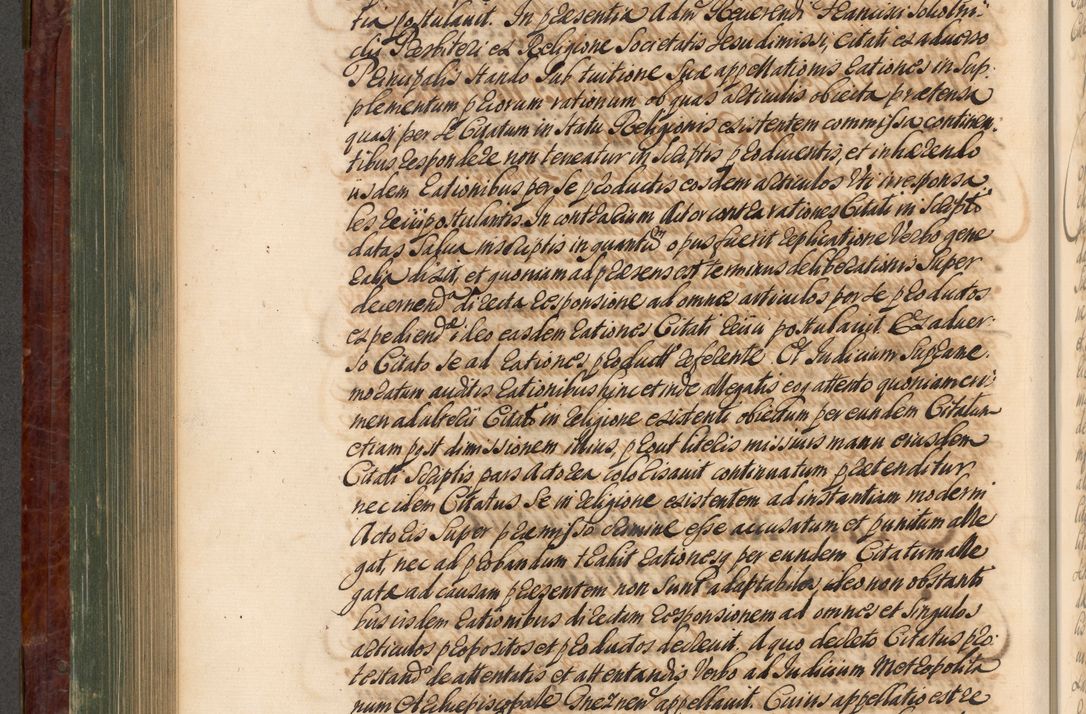 tia postulavit. In praesentia Admodum Reverendi Francisci Solcolni-
cki Presbiteri ex Religione Societatis Jesu dimissi, Citati ex adverso
Principalis stando sub tuitione suae appellationis rationes in sup-
plementum priorum rationum ob quas articulis obiecta praetensa
quasi per se Citatum in statu Religionis existentem commissa continen-
tibus respondere non teneatur in scriptis producentis, et inhaerendo
iisdem rationibus per se productis eosdem articulos uti irresponsa
les reiici postulantis. In contrarium Actor contra rationes Citati in scripto
datas salva inscriptis in quantum opus fuerit replicatione Verbo gene
ralia dixit, et quoniam ad praesens est terminus deliberationis super
decernend directa responsione ad omnes articulos per se productos
expediend ideo easdem rationes Citati reiici postulavit. Ex adver-
so Citato se ad rationes product referente. Et Judicium supranе-
moratum auditis rationibus hinc et inde allegatis eoq attento quoniam cri-
men adulterii Citato in religione existenti obiectum per eundem Citatum
etiam post dimissionem illius, prout literis missivis manu eiusdem
Citati scriptis pars Actorea colorisavit continuatum praetenditur
nec idem Citatus se in religione existentem ad instantiam moderni
Actoris super praemisso crimine esse accusatum et punitum alle
gat, nec ad probandum trahit rationesq per eundem Citatum alle
gata ad causam praesentem non sunt adaptabiles, ideo non obstanti
bus iisdem rationibus directam responsionem ad omnes et singulos
articulos propositos et productos decrevit. A quo decreto Citatus pro-
testand de attentatis et attentandis Verbo ad Judicium Metropolita
num Archiepiscopale Gneznen appellavit. Cuius appellatio est re